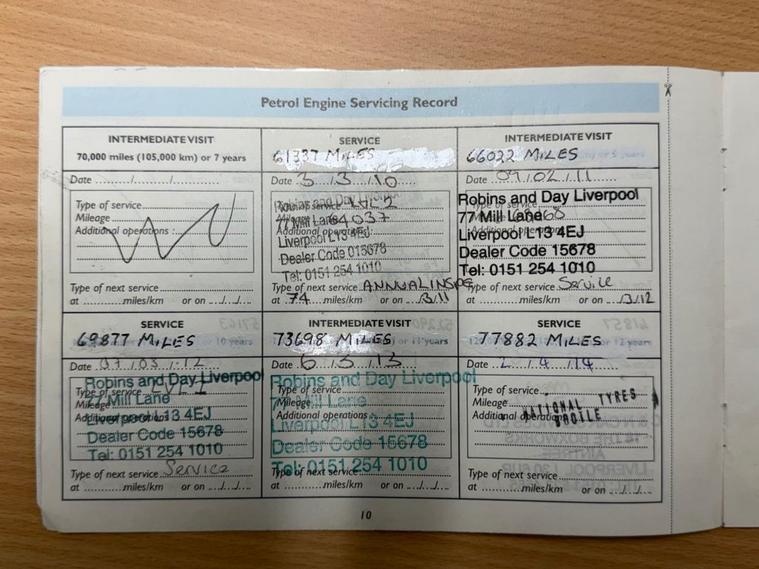 Petrol Engine Servicing Record
INTERMEDIATE VISIT
70,000 miles (105,000 km) or 7 years
Date ....../....../......
Type of service
Mileage
Additional operations :
Type of next service
at ......miles/km or on ../../..
SERVICE
61337 MILES
Date 3/3/10
Robins and Day Liverpool
Type of service
77 Mill Lane
Mileage 64037
Additional operations
Liverpool L13 4EJ
Dealer Code 015678
Tel: 0151 254 1010
Type of next service ANNUAL INSPC
at 74 miles/km or on /3/11
INTERMEDIATE VISIT
66022 MILES
Date 07/02/11
Robins and Day Liverpool
Type of service
77 Mill Lane
Mileage
Additional operations
Liverpool L13 4EJ
Dealer Code 15678
Tel: 0151 254 1010
Type of next service Service
at ......miles/km or on /3/12
SERVICE
69877 MILES
10 years
Date 07/03/12
Robins and Day Liverpool
Type of service LVL 1
77 Mill Lane
Mileage
Additional operations
Liverpool L13 4EJ
Dealer Code 15678
Tel: 0151 254 1010
Type of next service Service
at ......miles/km or on ../../..
INTERMEDIATE VISIT
73698 MILES
or 11 years
Date 6/3/13
Robins and Day Liverpool
Type of service
77 Mill Lane
Mileage
Additional operations
Liverpool L13 4EJ
Dealer Code 15678
Tel: 0151 254 1010
Type of next service
at ......miles/km or on ../../..
SERVICE
77882 MILES
or 12 years
Date 2/4/14
Type of service
Mileage
Additional operations
NATIONAL TYRES
Type of next service
at ......miles/km or on ../../..
10